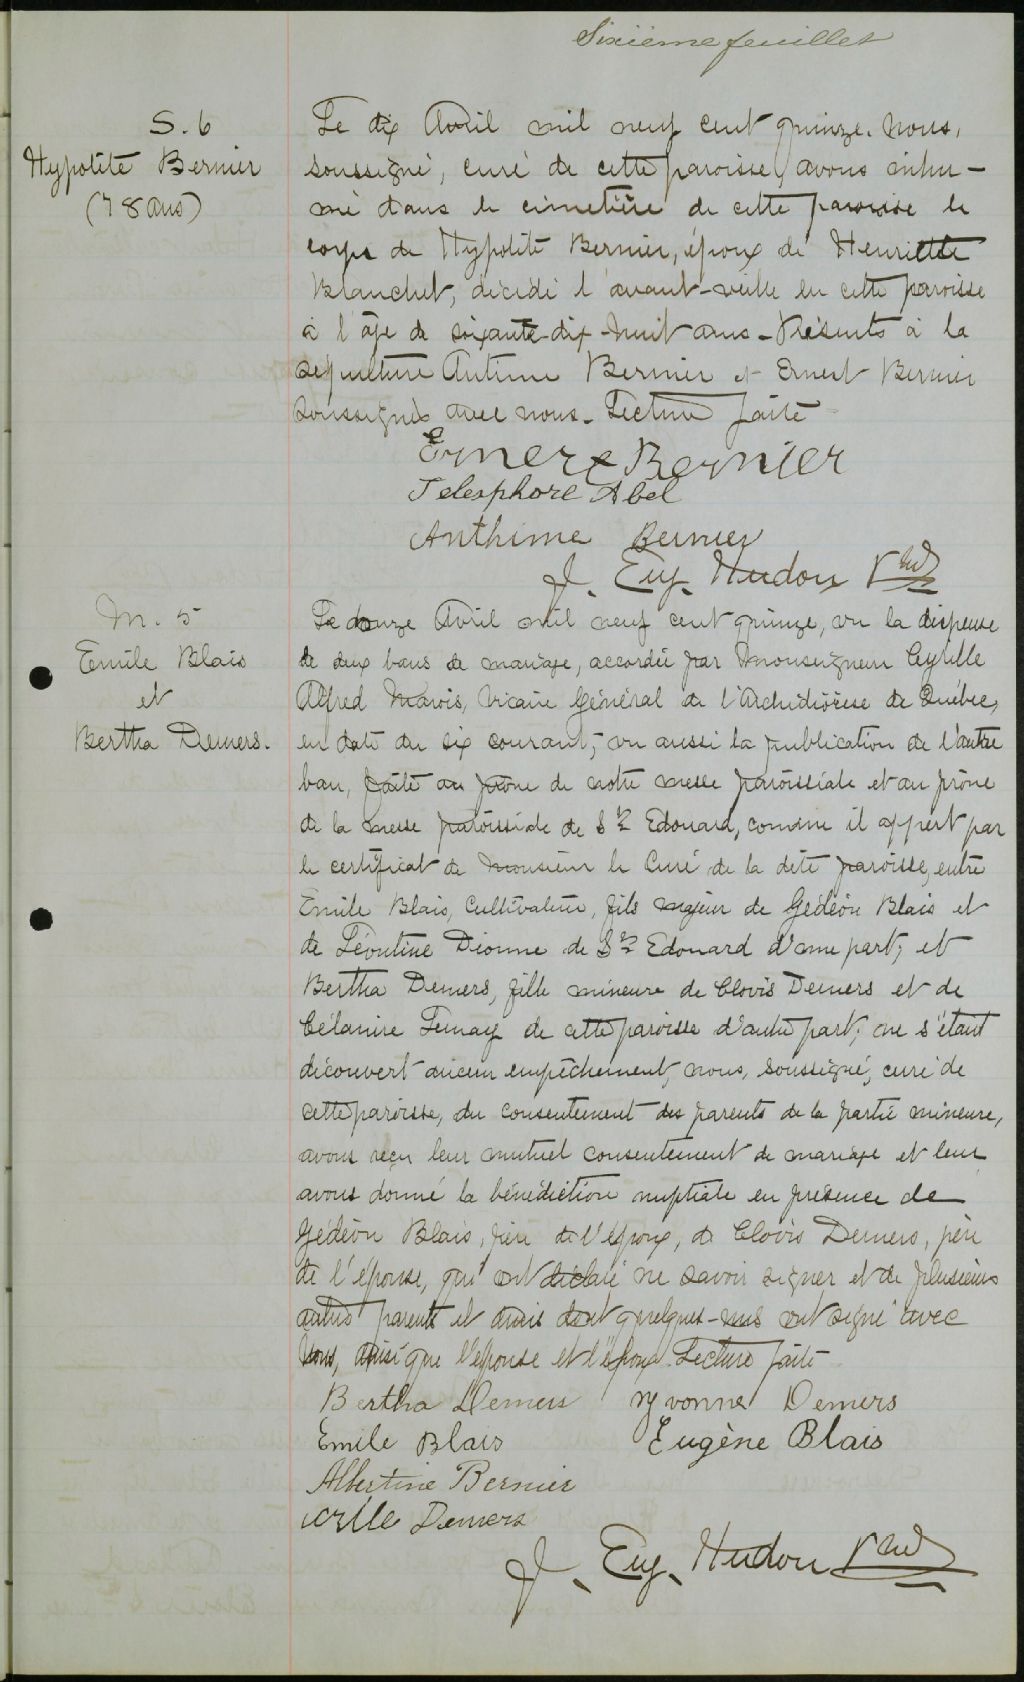 Sixième feuillet
S. 6
Hypolite Bernier
(78 ans)
Le dix Avril mil neuf cent quinze. Nous,
soussigné, curé de cette paroisse, avons inhu-
mé dans le cimetière de cette paroisse le
corps de Hypolite Bernier, époux de Henriette
Blanchet, décédé l'avant-veille en cette paroisse
à l'âge de soixante-dix-huit ans - Présents à la
sépulture Antime Bernier et Ernest Bernier
soussignés avec nous. Lecture faite
Bernier
Telesphore Abel
Anthime Bernier
J. Eug. Hudon
M. 5
Emile Blais
et
Bertha Demers.
Le douze Avril mil neuf cent quinze, vu la dispense
de deux bans de mariage, accordée par Monseigneur Cyrille
Alfred Marois, Vicaire Général de l'Archidiocèse de Québec,
en date du six courant; vu aussi la publication de l'autre
ban, faite au prône de notre messe paroissiale et au prône
de la messe paroissiale de St Edouard, comme il appert par
le certificat de Monsieur le Curé de la dite paroisse, entre
Emile Blais, Cultivateur, fils majeur de Gédéon Blais et
de Léontine Dionne de St Edouard d'une part; et
Bertha Demers, fille mineure de Clovis Demers et de
Célanire de cette paroisse d'autre part; ne s'étant
découvert aucun empêchement, nous, soussigné, curé de
cette paroisse, du consentement des parents de la partie mineure,
avons reçu leur mutuel consentement de mariage et leur
avons donné la bénédiction nuptiale en présence de
Gédéon Blais, père de l'époux, de Clovis Demers, père
de l'épouse, qui ont déclaré ne savoir signer et de plusieurs
autres parents et amis dont quelques-uns ont signé avec
nous, ainsi que l'épouse et l'époux. Lecture faite
Bertha Demers Yvonne Demers
Emile Blais Eugène Blais
Albertine Bernier
Demers
J. Eug. Hudon